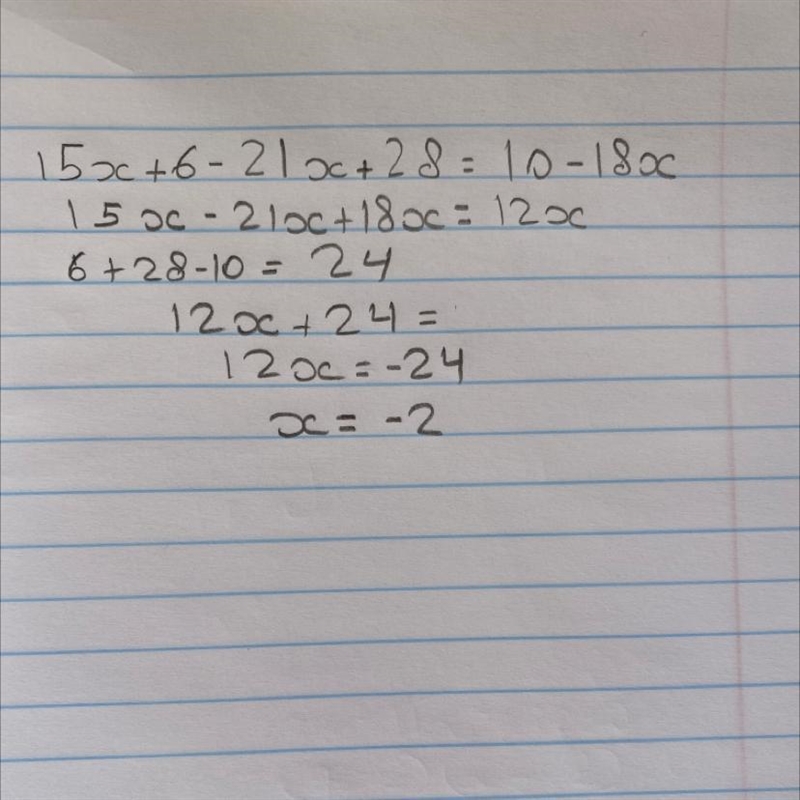 15x+6-21x+28=10-18x
15x-21x+18x=12x
6+28-10=24
12x+24=
12x=-24
x=-2